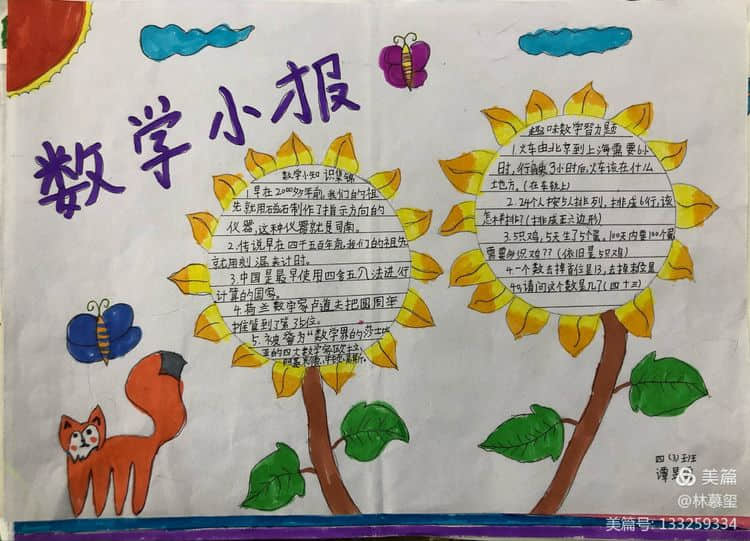 数学小报
数学小知识集锦
1.早在2000多年前,我们的祖
先就用磁石制作了指示方向的
仪器,这种仪器就是司南。
2.传说早在四千五百年前,我们的祖先
就用刻漏来计时。
3.中国是最早使用四舍五入法进行
计算的国家。
4.荷兰数学家卢道夫把圆周率
推算到了第35位。
5.被誉为"数学界的莎士比
亚的四大数学家欧拉、
趣味数学智力题
1.火车由北京到上海需要6小
时,行使3小时后,火车该在什么
地方,(在车轨上)
2.24个人按5人排列,排成6行,该
怎样排?(排成正六边形)
3.5只鸡,5天生了5个蛋,100天内要100个蛋
需要多少只鸡??(依旧是5只鸡)
4.一个数去掉首位是13,去掉末位是
40.请问这个数是几?(四十三)
四(3)班
谭
美篇
@林慕玺
美篇号:133259334